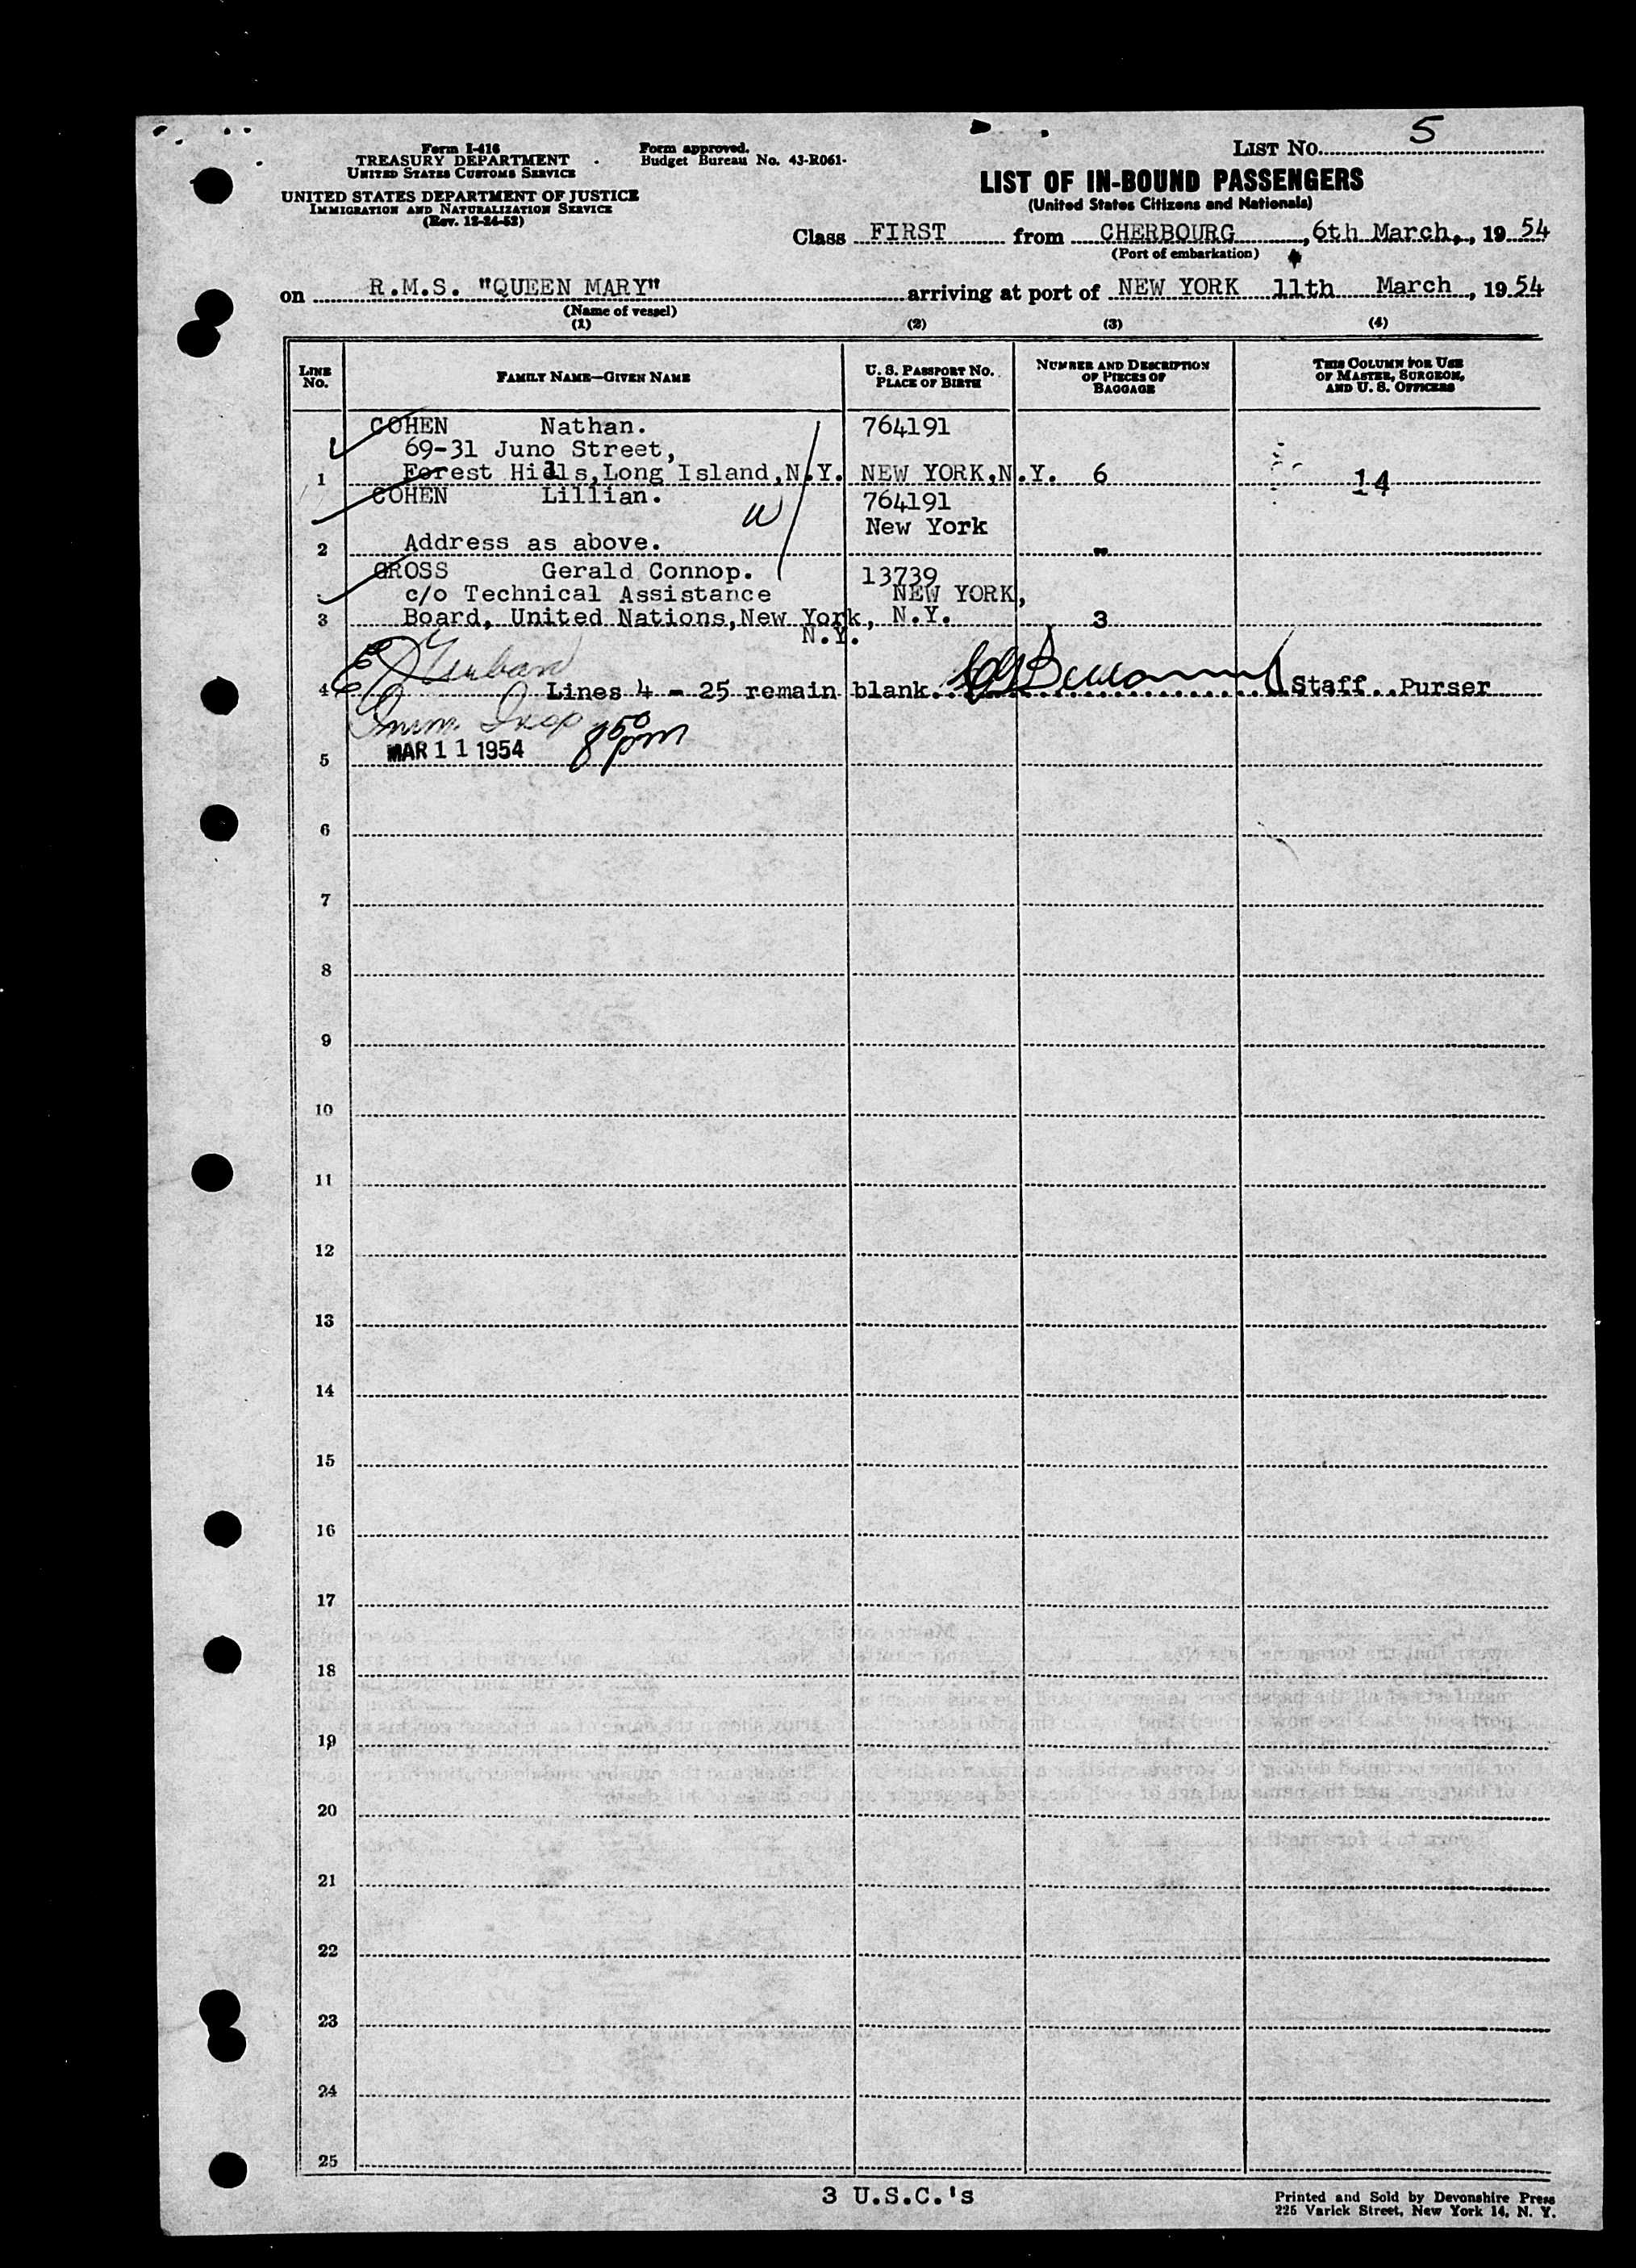 LIST No. 5
Form I-416
TREASURY DEPARTMENT
UNITED STATES CUSTOMS SERVICE
UNITED STATES DEPARTMENT OF JUSTICE
IMMIGRATION AND NATURALIZATION SERVICE
(Rev. 12-24-52)
Form approved.
Budget Bureau No. 43-R061-
LIST OF IN-BOUND PASSENGERS
(United States Citizens and Nationals)
Class FIRST from CHERBOURG, 6th March, 1954
(Port of embarkation)
on R.M.S. "QUEEN MARY" arriving at port of NEW YORK 11th March, 1954
(Name of vessel)
(1) (2) (3) (4)
LINE No. FAMILY NAME—GIVEN NAME U. S. PASSPORT No. PLACE OF BIRTH NUMBER AND DESCRIPTION OF PIECES OF BAGGAGE THIS COLUMN FOR USE OF MASTER, SURGEON, AND U. S. OFFICERS
COHEN Nathan. 764191
69-31 Juno Street,
1 Forest Hills, Long Island, N.Y. NEW YORK, N.Y. 6 14
COHEN Lillian. 764191
W New York
2 Address as above. -
GROSS Gerald Connop. 13739
c/o Technical Assistance NEW YORK,
3 Board, United Nations, New York, N.Y. 3
N.Y.
4 Lines 4 - 25 remain blank. Staff Purser
Imm. Insp 8 50 pm
5 MAR 11 1954
6
7
8
9
10
11
12
13
14
15
16
17
18
19
20
21
22
23
24
25
3 U.S.C.'s
Printed and Sold by Devonshire Press
225 Varick Street, New York 14, N. Y.